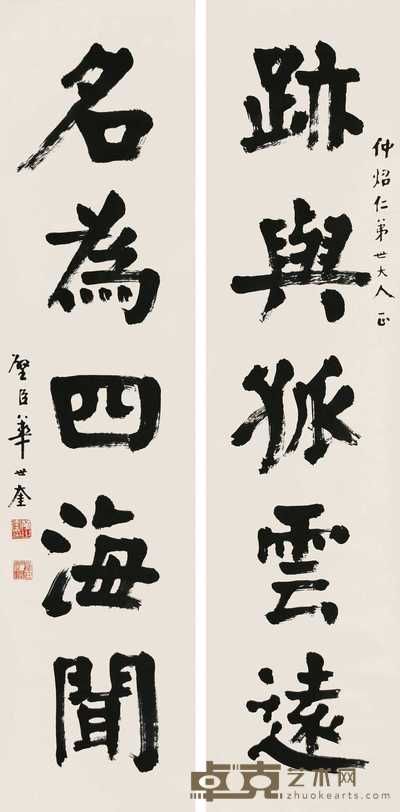 仲炤仁弟世大人正
跡與孤雲遠
名為四海聞
璧臣華世奎
卓克艺术网
zhuokearts.com